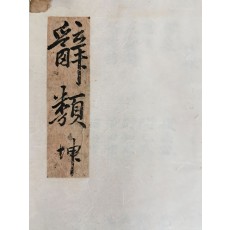 辭類坤